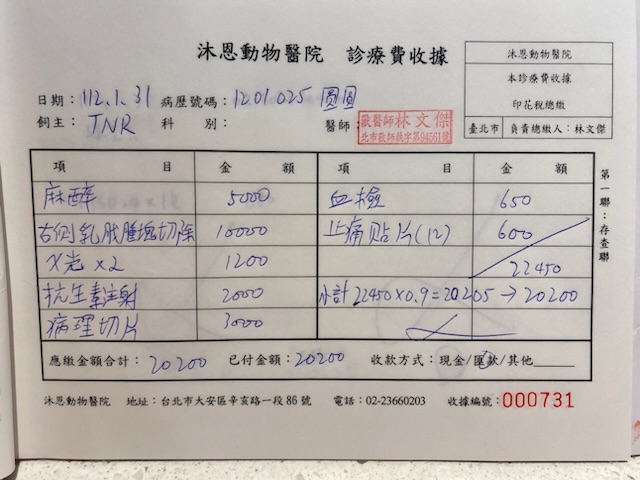 沐恩動物醫院 診療費收據
沐恩動物醫院
本診療費收據
印花稅總繳
臺北市 負責總繳人：林文傑
日期：112.1.31 病歷號碼：1201025 圓圓
飼主：TNR 科 別： 醫師：
獸醫師林文傑
北市獸師執字第94561號
項 目 金 額 項 目 金 額
麻醉 5000 血檢 650
右側乳腺腫塊切除 10000 止痛貼片(12) 600
X光 x2 1200 22450
抗生素注射 2000 小計 22450x0.9=20205 → 20200
病理切片 3000
應繳金額合計：20200 已付金額：20200 收款方式：現金/匯款/其他
第一聯：存查聯
沐恩動物醫院 地址：台北市大安區辛亥路一段86號 電話：02-23660203 收據編號：000731